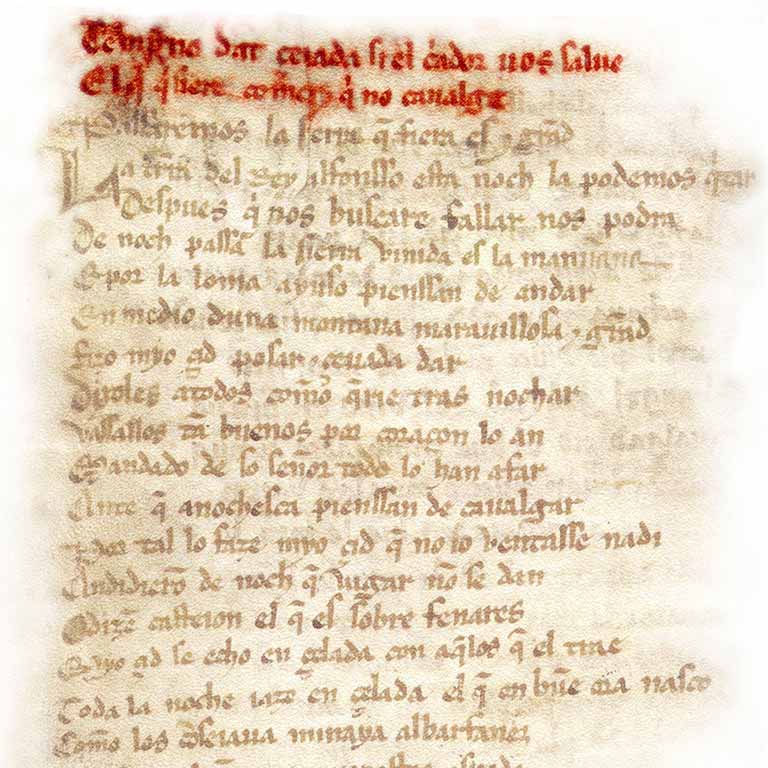 Temprano dat ceuada si el c̃ador uos salue
El q̃ q̃siere comer q̃ no caualge
Passaremos la sierra q̃ fiera es ⁊ grãd
La trr̃a del Rey alfonsso esta noch la podemos q̃tar
Despues q̃ nos buscare fallar nos podra
De noch passã la sierra vinida es la mannana
E por la loma ayuso pienssan de andar
En medio duna montana marauillosa ⁊ grãd
fizo myo çid posar ⁊ ceuada dar
Dixoles atodos com̃o q̃rie tras nochar
vassallos tã buenos por coraçon lo an
Mandado de so señor todo lo han afar
Ante q̃ anochesca pienssan de caualgar
Por tal lo faze myo çid q̃ no io ventasse nadi
Andidierõ de noch q̃ vagar nõ se dan
Odizẽ casteion el q̃ es sobre fenares
Myo çid se echo en çelada con aq̃los q̃ el trae
Toda la noche iaze en çelada el q̃ en buẽ ora nasco
Com̃o los cõseiaua minaya albarfanez